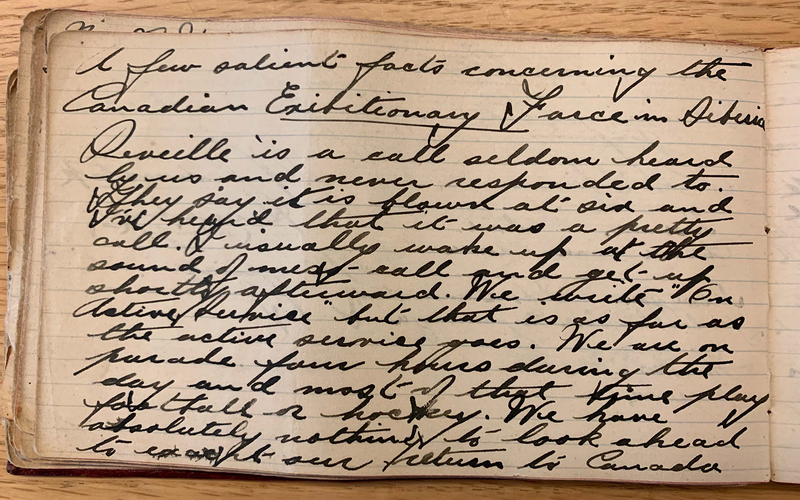 A few salient facts concerning the
Canadian Exibitionary Farce in Siberia
Reveille is a call seldom heard
by us and never responded to.
They say it is blown at six and
I've heard that it was a pretty
call. I usually wake up at the
sound of mess-call and get up
shortly afterward. We write "On
Active Service" but that is as far as
the active service goes. We are on
parade four hours during the
day and most of that time play
football or hockey. We have
absolutely nothing to look ahead
to except our return to Canada